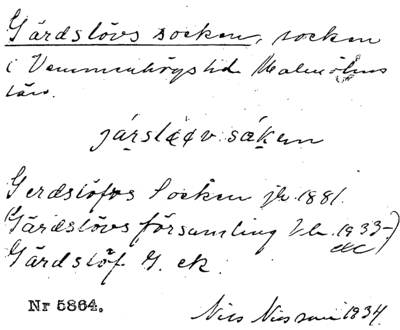 Gärdslövs socken, socken
i Vemmenhögs hd Malmöhus
län.
järslöv säken
Gerdslöfvs Socken jb 1881.
Gärdslövs församling 1933
Gärdslöf G. ek.
Nr 5864.
Nils Nilsson 1934.